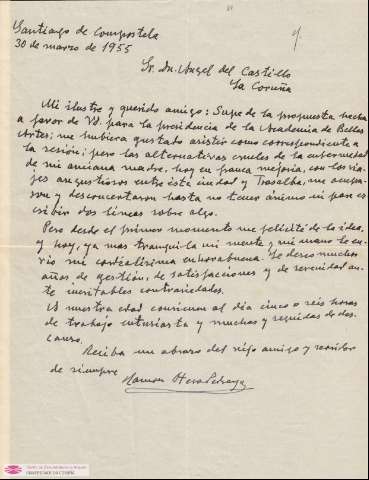 Santiago de Compostela
30 de marzo de 1955
Sr. Dn. Angel del Castillo
La Coruña
Mi ilustre y querido amigo: Supe de la propuesta hecha
a favor de Vd. para la presidencia de la Academia de Bellas
Artes; me hubiera gustado asistir como correspondiente a
la sesión; pero las alternativas crueles de la enfermedad
de mi anciana madre, hoy en franca mejoría, con los via-
jes angustiosos entre ésta ciudad y Trasalba, me ocupa-
ron y desconcertaron hasta no tener ánimo ni para es-
cribir dos líneas sobre algo.
Pero desde el primer momento me felicité de la idea,
y hoy, ya mas tranquila mi mente y mi mano le en-
vío mi cordialísima enhorabuena. Le deseo muchos
años de gestión, de satisfacciones y de serenidad an-
te inevitables contrariedades.
A nuestra edad convienen al día cinco o seis horas
de trabajo entusiasta y muchas y seguidas de des-
canso.
Reciba un abrazo del viejo amigo y servidor
de siempre
Ramon Otero Pedrayo
UNIVERSIDADE DA CORUÑA